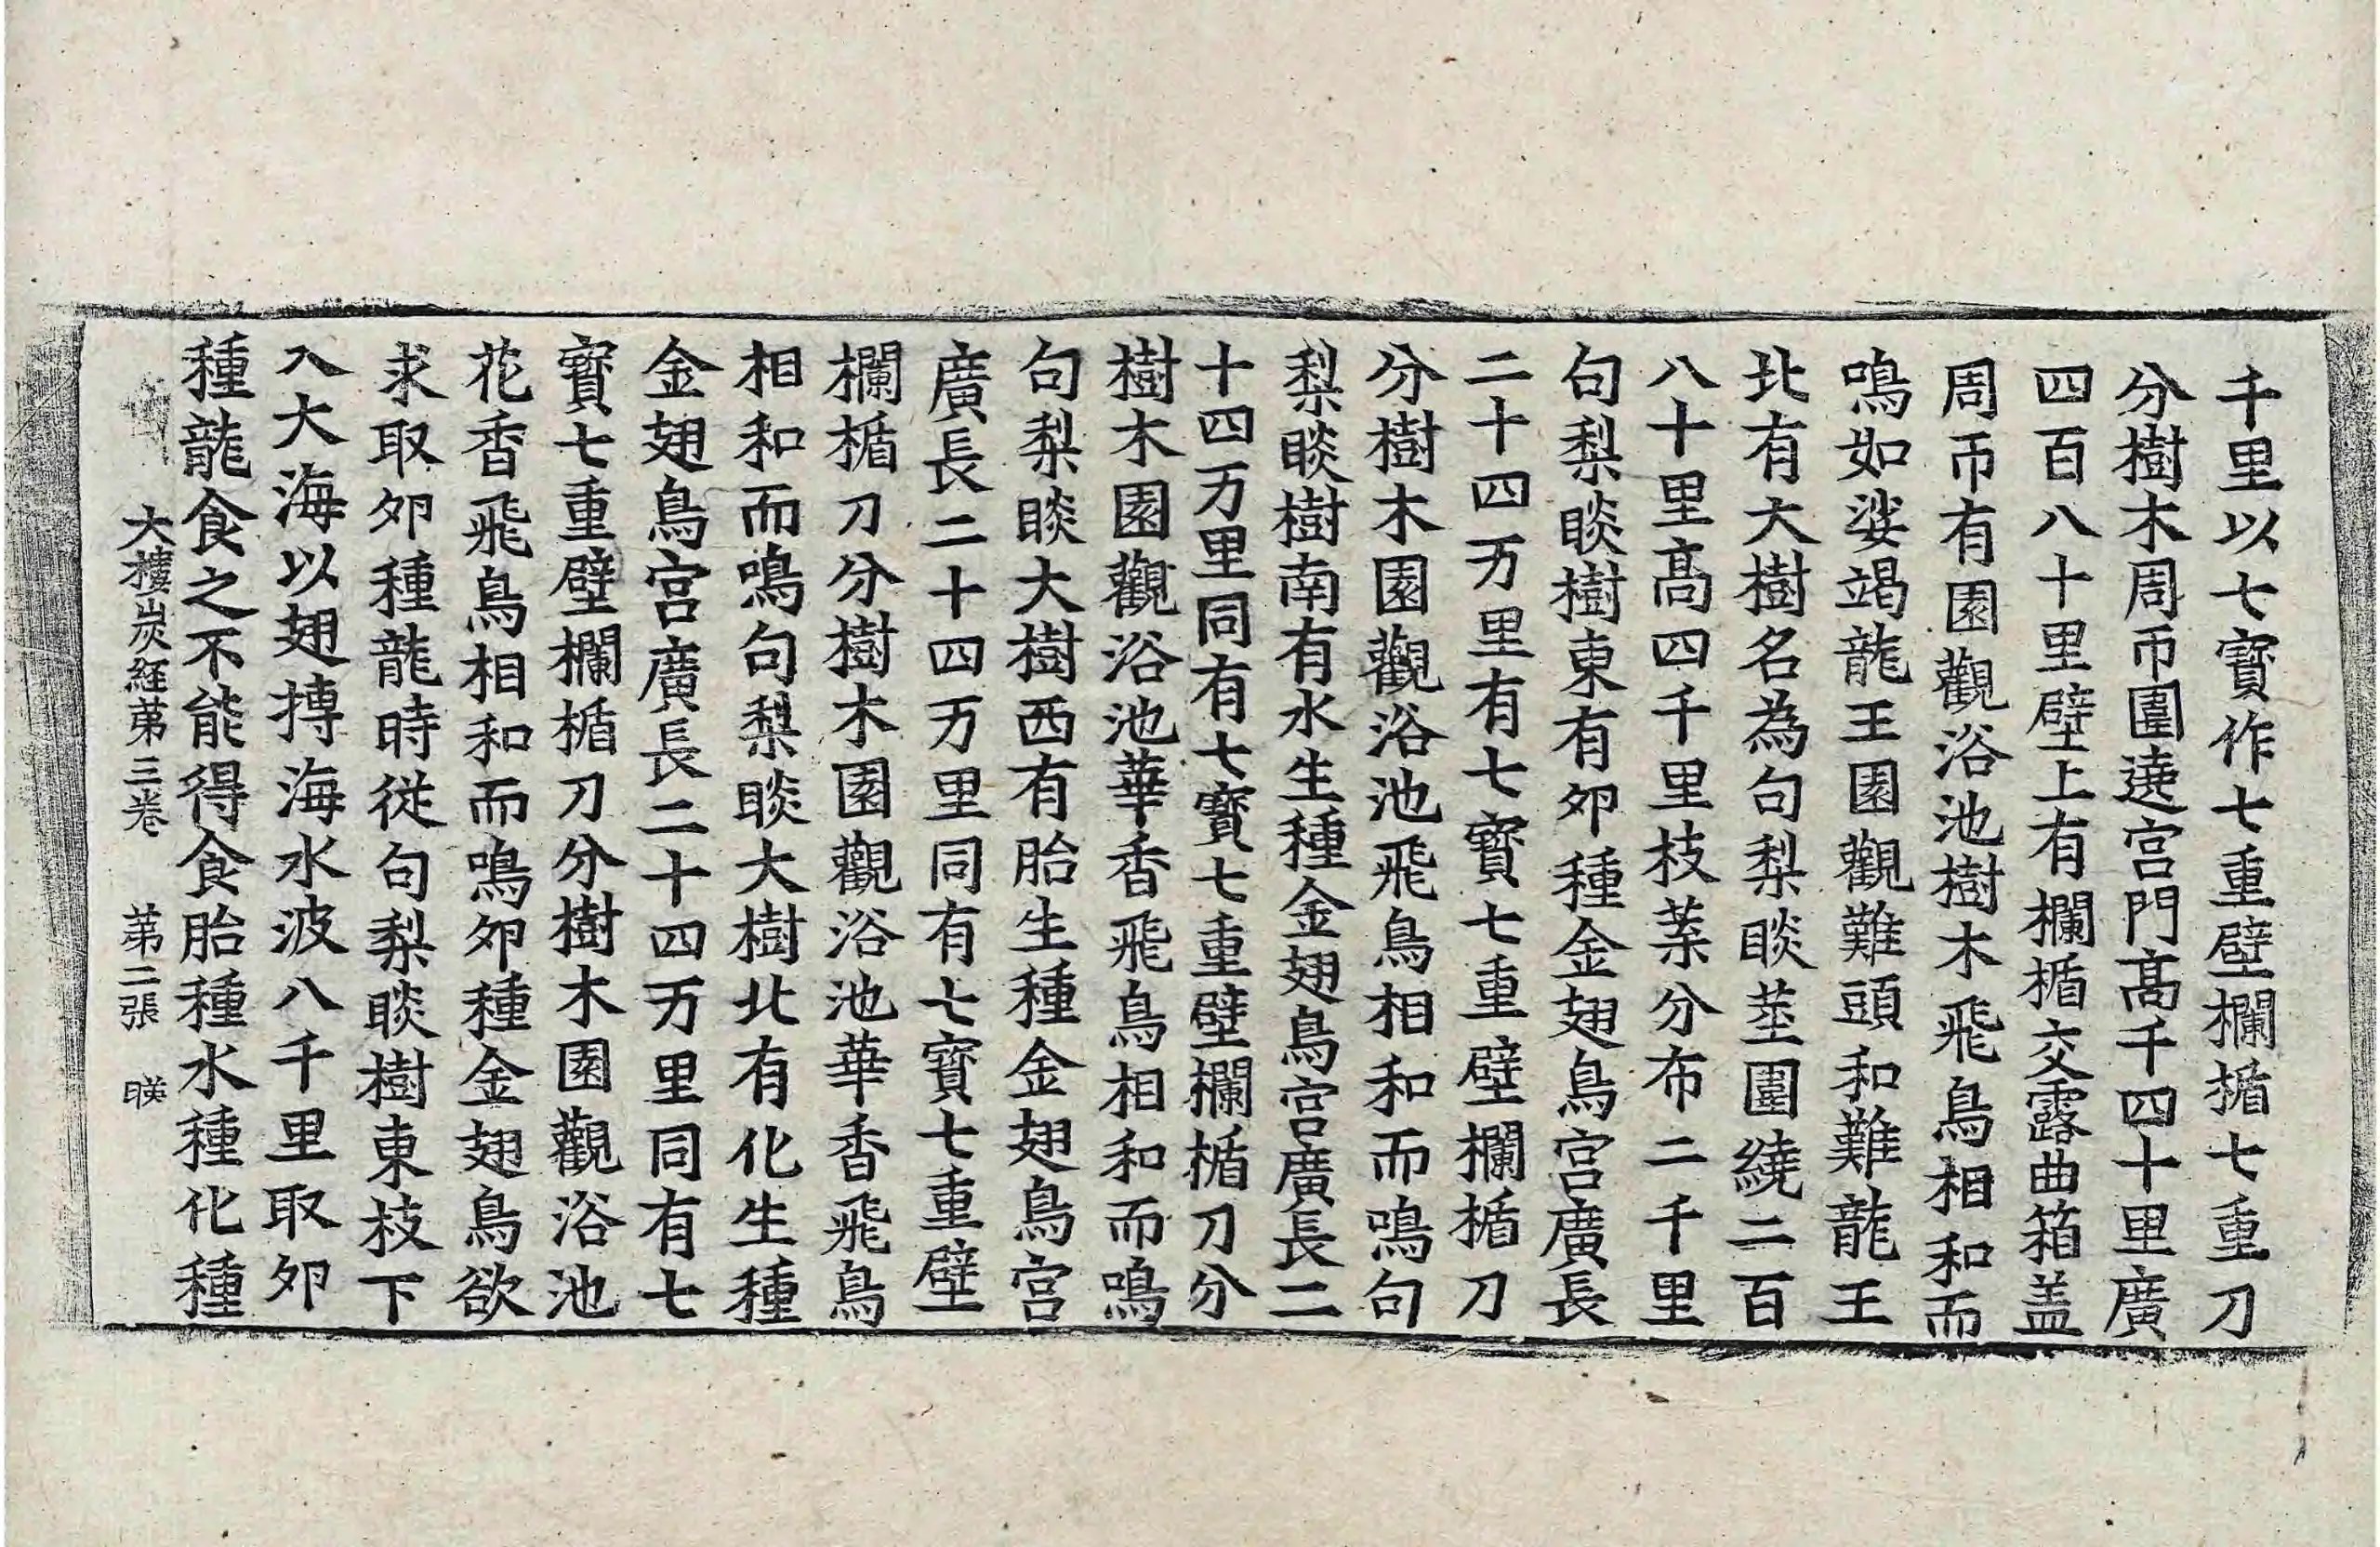 千里以七寶作七重壁欄楯七重刀
分樹木周帀圍遶宮門髙千四十里廣
四百八十里壁上有欄楯交露曲箱盖
周帀有園觀浴池樹木飛鳥相和而
鳴如娑竭龍王園觀難頭和難龍王
北有大樹名為句梨睒莖圍繞二百
八十里髙四千里枝葉分布二千里
句梨睒樹東有夘種金翅鳥宮廣長
二十四万里有七寶七重壁欄楯刀
分樹木園觀浴池飛鳥相和而鳴句
梨睒樹南有水生種金翅鳥宮廣長二
十四万里同有七寶七重壁欄楯刀分
樹木園觀浴池華香飛鳥相和而鳴
句梨睒大樹西有胎生種金翅鳥宮
廣長二十四万里同有七寶七重壁
欄楯刀分樹木園觀浴池華香飛鳥
相和而鳴句梨睒大樹北有化生種
金翅鳥宮廣長二十四万里同有七
寶七重壁欄楯刀分樹木園觀浴池
花香飛鳥相和而鳴夘種金翅鳥欲
求取夘種龍時從句梨睒樹東枝下
入大海以翅搏海水波八千里取夘
種龍食之不能得食胎種水種化種
大樓炭経苐三卷 苐二張 暎